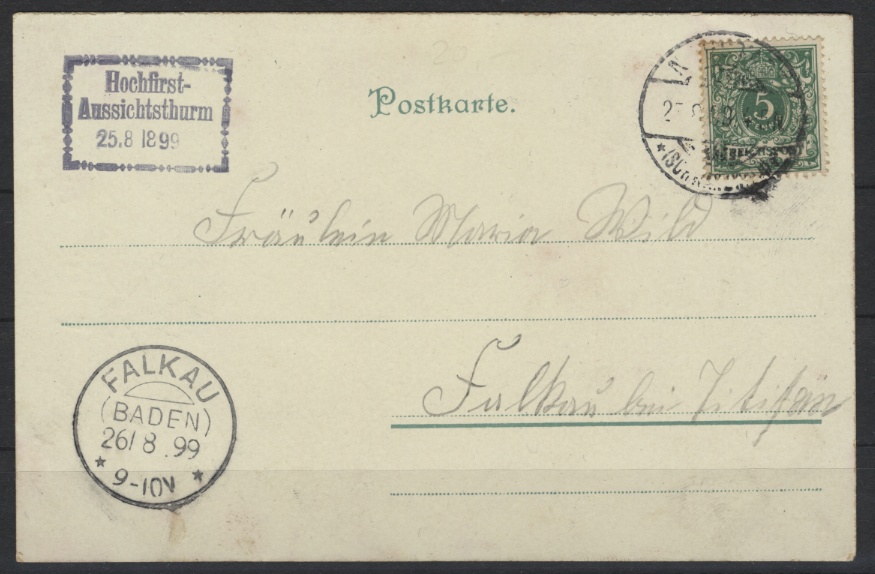 Hochfirst-
Aussichtsthurm
25.8 1899
Postkarte.
5
Fräulein Maria Wild
FALKAU
(BADEN)
26/8.99
* 9-10V *
Falkau bei